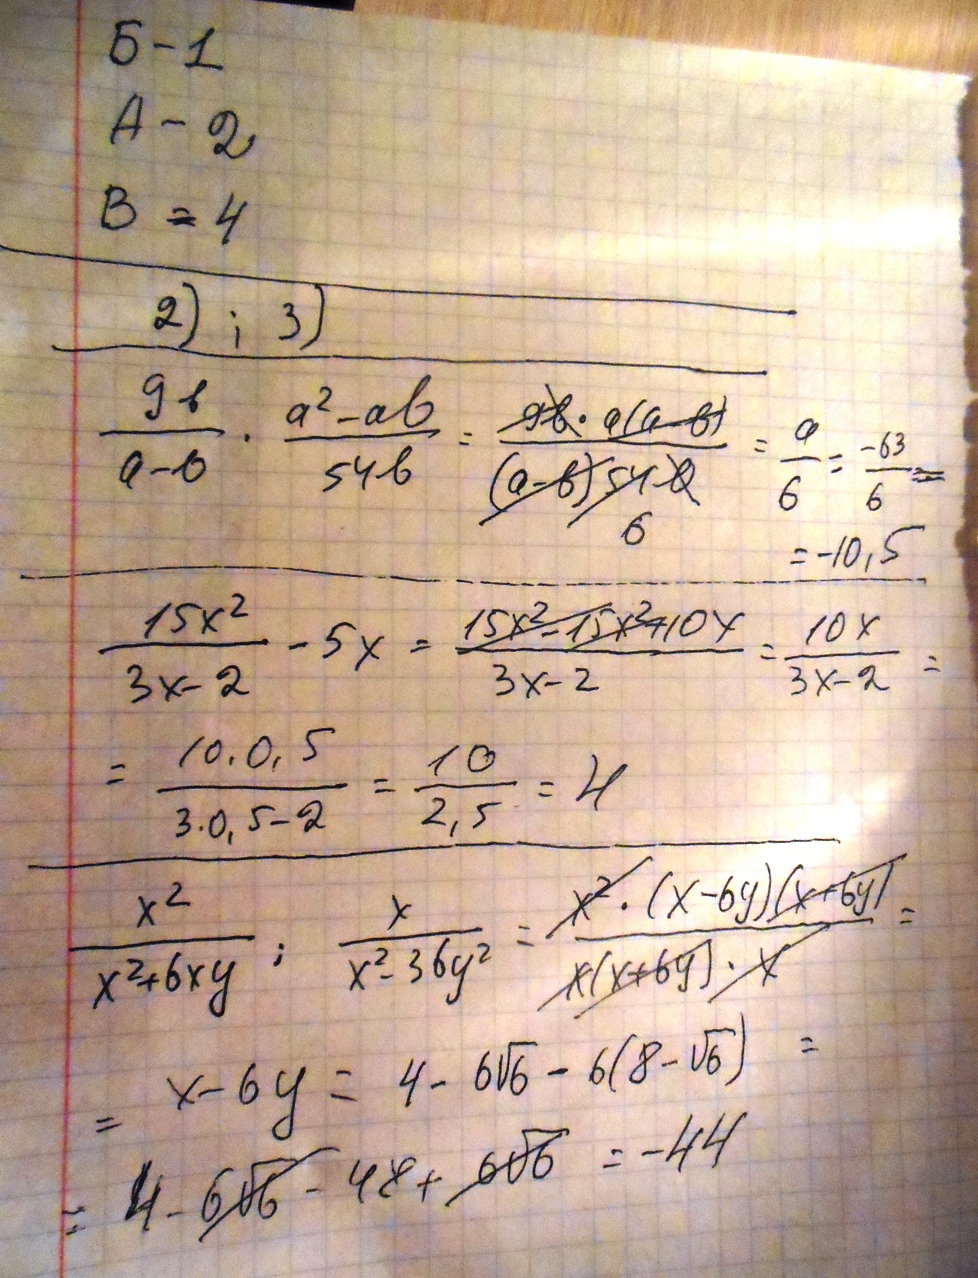 Б - 1
А - 2
В = 4
2) ; 3)
9b/(a-b) · (a²-ab)/(54b) = (9b · a(a-b))/((a-b) 54b) 6 = a/6 = -63/6 =
= -10,5
15x²/(3x-2) - 5x = (15x²-15x²+10x)/(3x-2) = 10x/(3x-2) =
= (10·0,5)/(3·0,5-2) = 10/2,5 = 4
x²/(x²+6xy) : x/(x²-36y²) = (x²·(x-6y)(x+6y))/(x(x+6y)·x) =
= x-6y = 4-6√6 - 6(8-√6) =
= 4-6√6 - 48+6√6 = -44